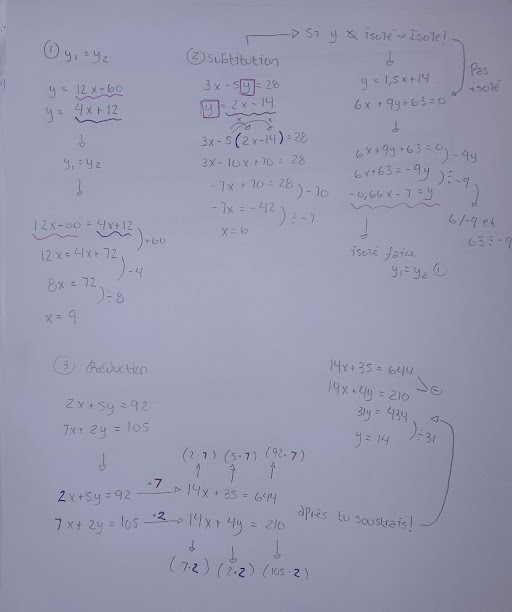 ① y₁ = y₂
y = 12x-60
y = 4x+12
y₁ = y₂
12x-60 = 4x+12
)+60
12x = 4x+72
)-4
8x = 72
)÷8
x = 9
② Subtitution
3x-5y = 28
y = 2x-14
3x-5(2x-14) = 28
3x-10x+70 = 28
-7x+70 = 28
)-70
-7x = -42
)÷-7
x = 6
Si y isolé → Isole!
y = 1,5x+14
6x+9y+63=0
Pas
isolé
6x+9y+63=0
)-9y
6x+63=-9y
)÷-9
-0,66x-7=y
6/-9 et
63÷-9
isolé faire
y₁=y₂ ①
③ Réduction
2x+5y = 92
7x+2y = 105
(2·7) (5·7) (92·7)
2x+5y=92 ·7 → 14x+35=644
7x+2y=105 ·2 → 14x+4y=210
(7·2) (2·2) (105·2)
après tu soustrais!
14x+35=644
14x+4y=210
⊖
31y=434
)÷31
y=14